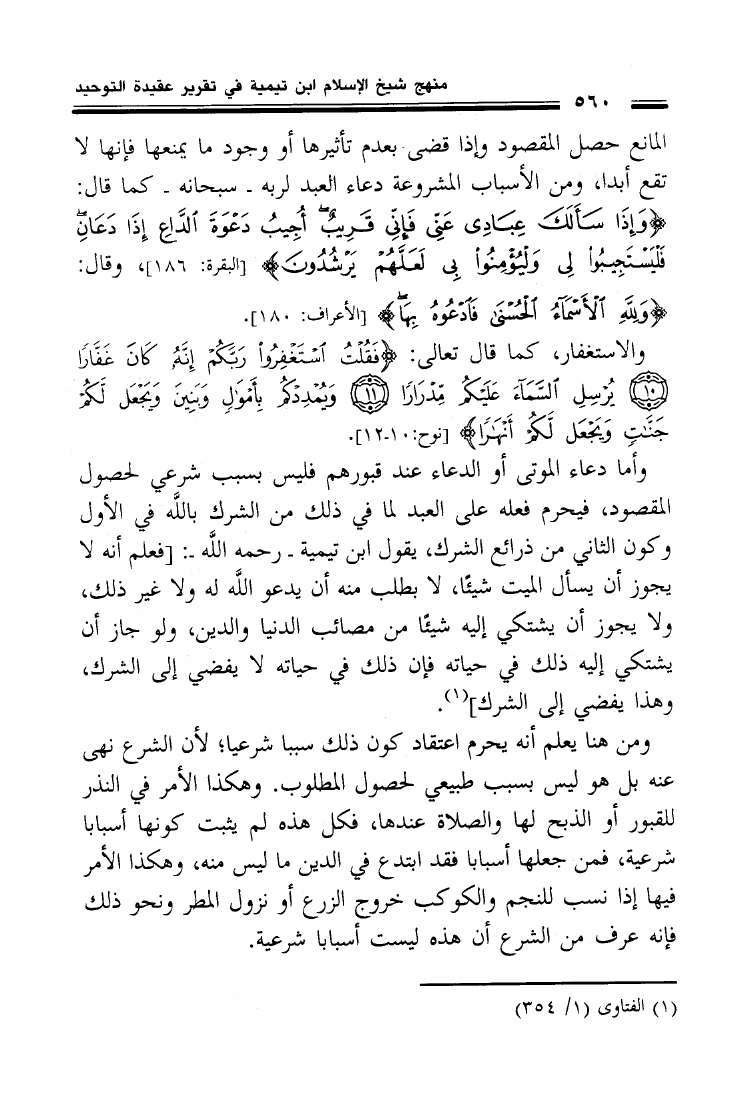 منهج شيخ الإسلام ابن تيمية في تقرير عقيدة التوحيد
٥٦٠
المانع حصل المقصود وإذا قضى بعدم تأثيرها أو وجود ما يمنعها فإنها لا
تقع أبدا، ومن الأسباب المشروعة دعاء العبد لربه ـ سبحانه ـ كما قال:
﴿وَإِذَا سَأَلَكَ عِبَادِى عَنِّى فَإِنِّى قَرِيبٌۖ أُجِيبُ دَعْوَةَ ٱلدَّاعِ إِذَا دَعَانِۖ
فَلْيَسْتَجِيبُوا۟ لِى وَلْيُؤْمِنُوا۟ بِى لَعَلَّهُمْ يَرْشُدُونَ﴾ [البقرة: ١٨٦]، وقال:
﴿وَلِلَّهِ ٱلْأَسْمَآءُ ٱلْحُسْنَىٰ فَٱدْعُوهُ بِهَاۖ﴾ [الأعراف: ١٨٠].
والاستغفار، كما قال تعالى: ﴿فَقُلْتُ ٱسْتَغْفِرُوا۟ رَبَّكُمْ إِنَّهُۥ كَانَ غَفَّارًا
١٠ يُرْسِلِ ٱلسَّمَآءَ عَلَيْكُم مِّدْرَارًا ١١ وَيُمْدِدْكُم بِأَمْوَٰلٍ وَبَنِينَ وَيَجْعَل لَّكُمْ
جَنَّٰتٍ وَيَجْعَل لَّكُمْ أَنْهَٰرًا﴾ [نوح: ١٠-١٢].
وأما دعاء الموتى أو الدعاء عند قبورهم فليس بسبب شرعي لحصول
المقصود، فيحرم فعله على العبد لما في ذلك من الشرك باللَّه في الأول
وكون الثاني من ذرائع الشرك، يقول ابن تيمية ـ رحمه اللَّه ـ: [فعلم أنه لا
يجوز أن يسأل الميت شيئًا، لا بطلب منه أن يدعو اللَّه له ولا غير ذلك،
ولا يجوز أن يشتكي إليه شيئًا من مصائب الدنيا والدين، ولو جاز أن
يشتكي إليه ذلك في حياته فإن ذلك في حياته لا يفضي إلى الشرك،
وهذا يفضي إلى الشرك](١).
ومن هنا يعلم أنه يحرم اعتقاد كون ذلك سببا شرعيا؛ لأن الشرع نهى
عنه بل هو ليس بسبب طبيعي لحصول المطلوب. وهكذا الأمر في النذر
للقبور أو الذبح لها والصلاة عندها، فكل هذه لم يثبت كونها أسبابا
شرعية، فمن جعلها أسبابا فقد ابتدع في الدين ما ليس منه، وهكذا الأمر
فيها إذا نسب للنجم والكوكب خروج الزرع أو نزول المطر ونحو ذلك
فإنه عرف من الشرع أن هذه ليست أسبابا شرعية.
(١) الفتاوى (١/ ٣٥٤)